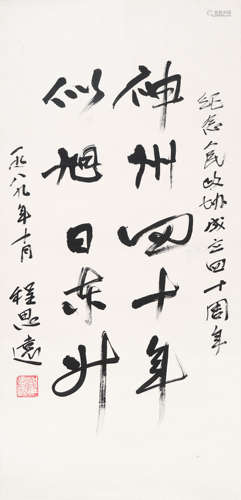 纪念人民政协成立四十周年
神州四十年
似旭日东升
一九八九年十月
程思远